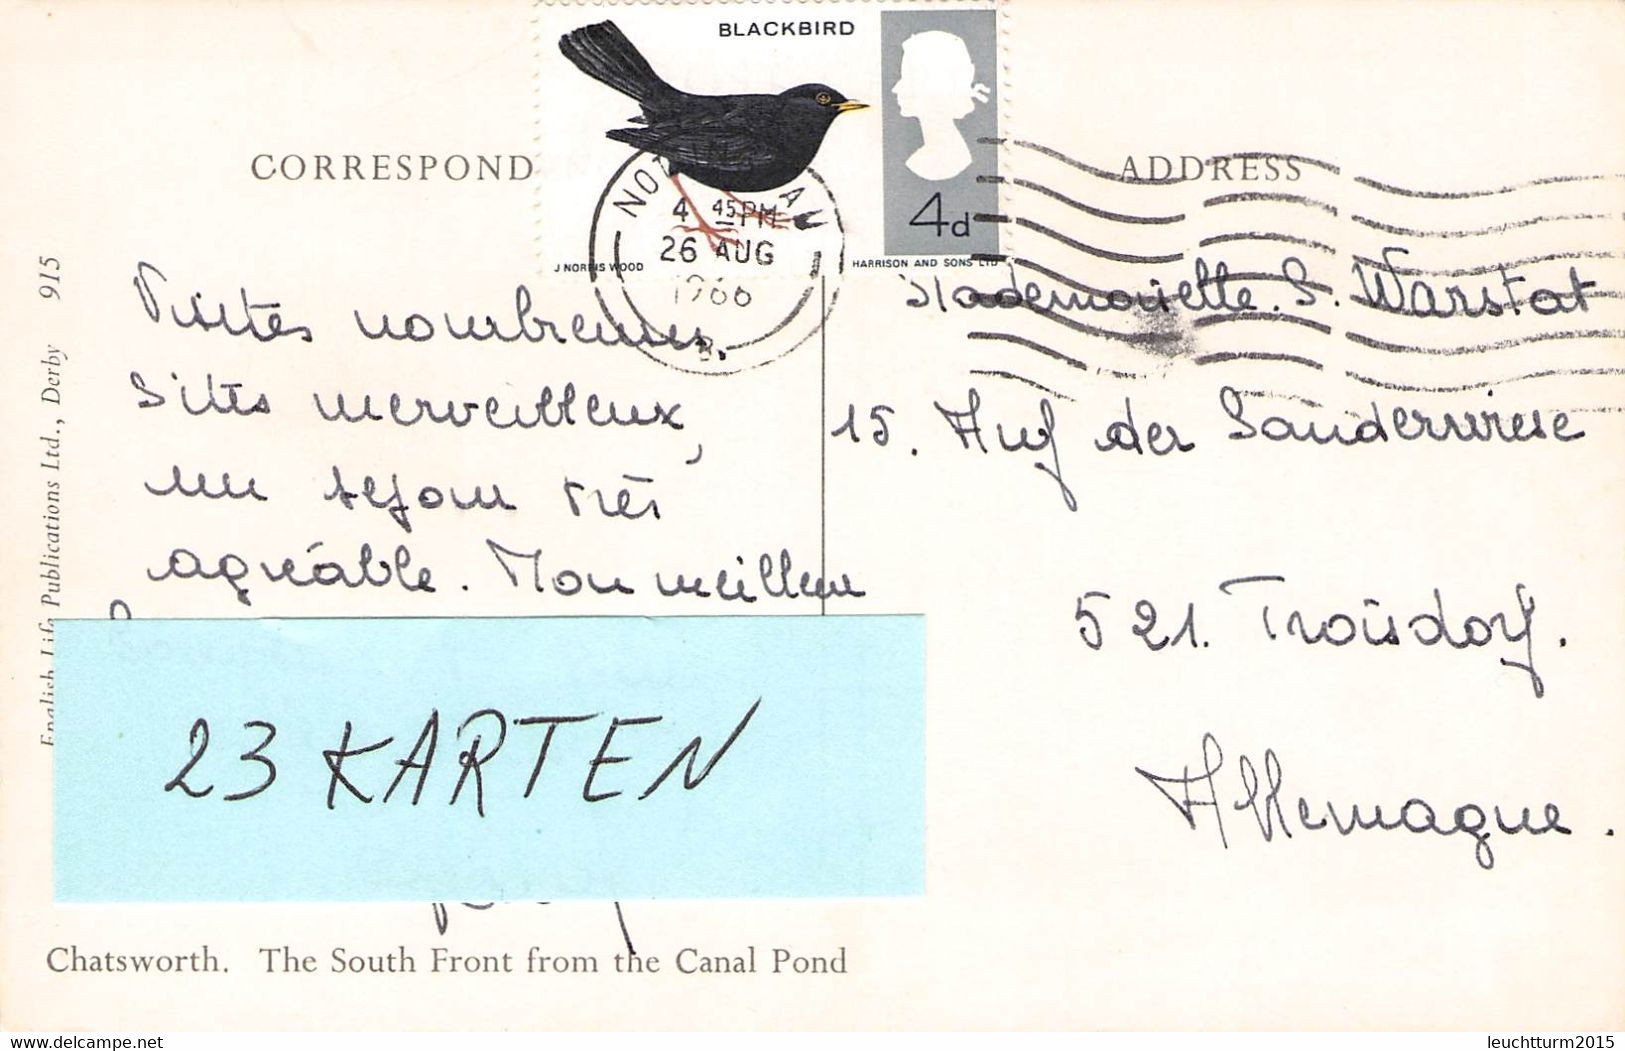 BLACKBIRD
4d
J NORRIS WOOD
HARRISON AND SONS LTD
4 45 PM
26 AUG
1966
CORRESPOND
ADDRESS
Visites nombreuses.
Sites merveilleux,
un séjour très
agréable. Mon meilleur
Mademoiselle. S. Warstat
15. Auf der Sanderwiese
521. Troisdorf.
Allemagne.
English Life Publications Ltd., Derby 915
23 KARTEN
Chatsworth. The South Front from the Canal Pond
delcampe.net
leuchtturm2015